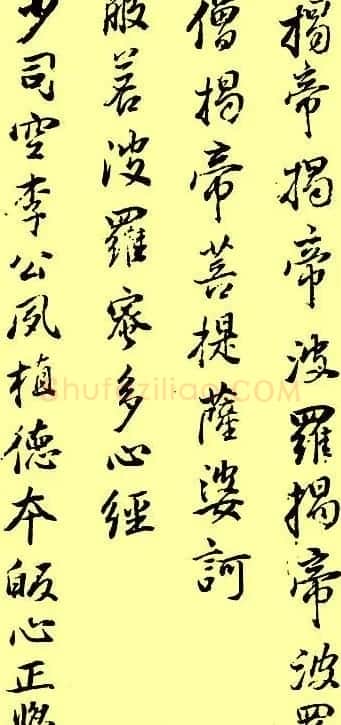 揭帝揭帝波羅揭帝波羅
僧揭帝菩提薩婆訶
般若波羅蜜多心經
少司空李公夙植德本皈心正
Shufaziliao.COM